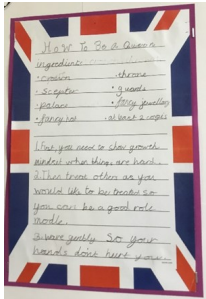 How To Be a Queen
ingredients
• crown • throne
• scepter • guards
• palace • fancy jewellery
• fancy hat • at least 2 corgis
1. First, you need so show growth
mindset when things are hard.
2. Then treat others as you
would like to be treated so
you can be a good role
modle.
3. wave gently So your
hands don't hurt you